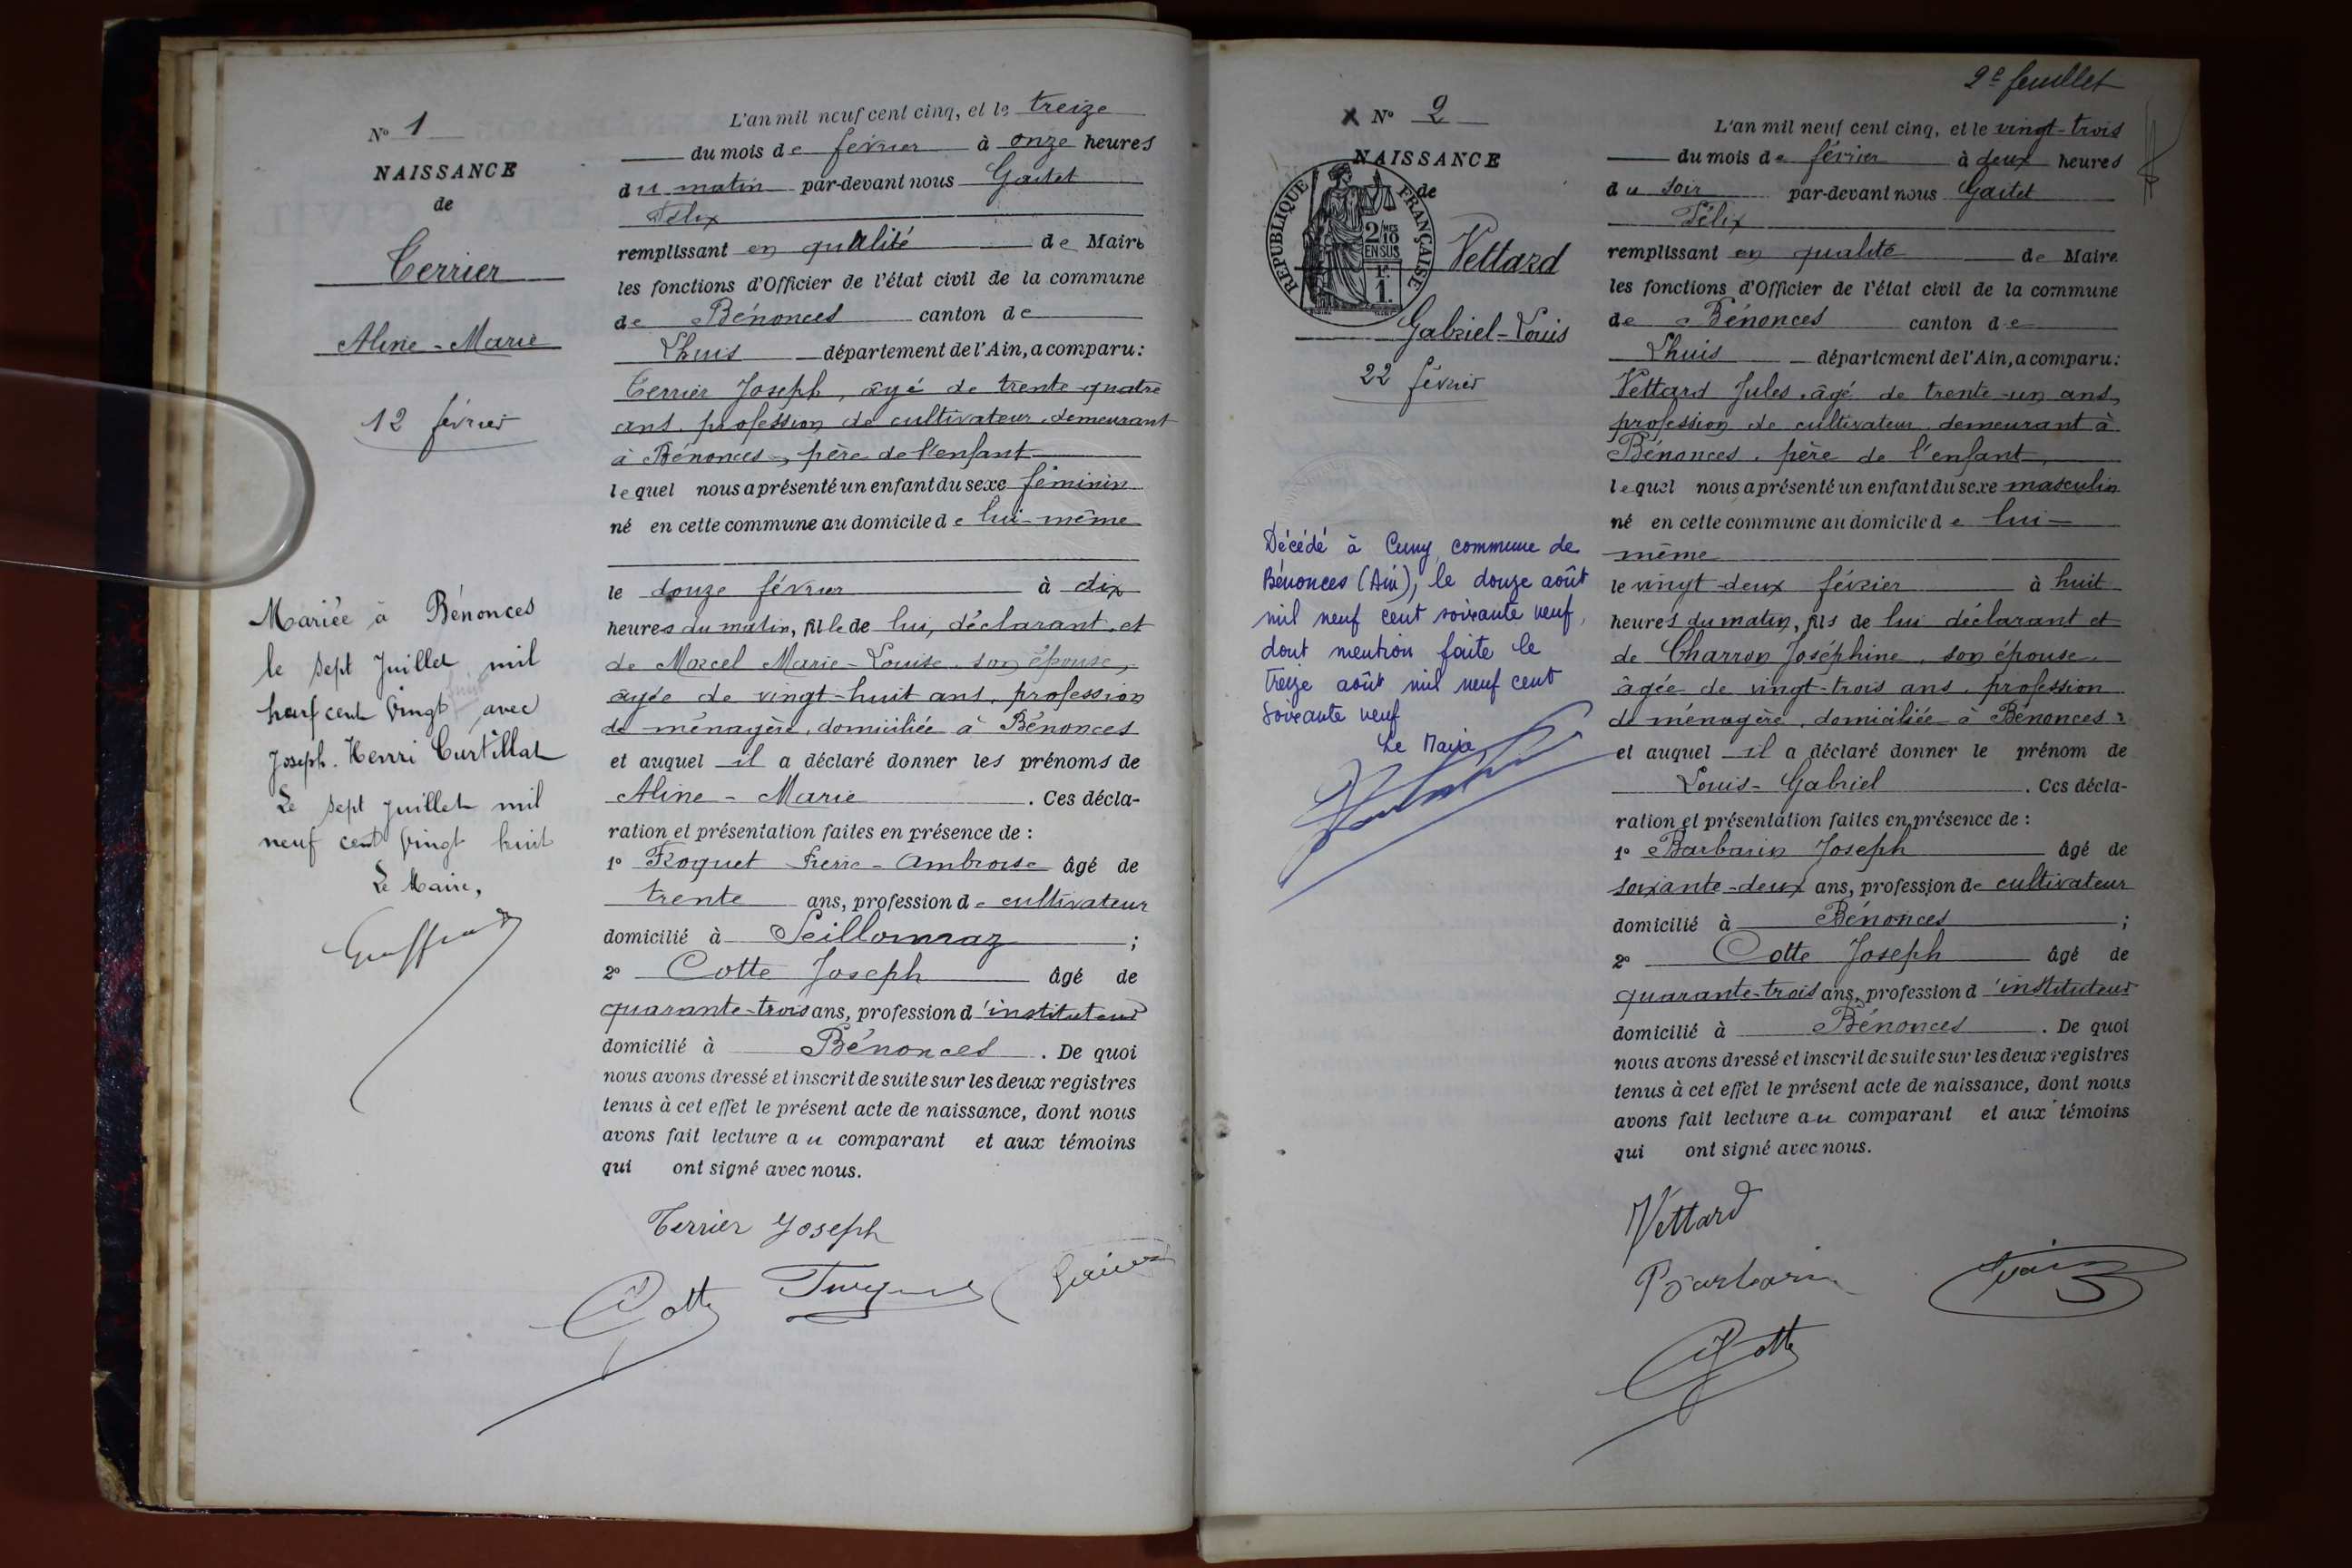 N° 1
NAISSANCE
de
Terrier
Aline-Marie
12 février
Mariée à Bénonces
le sept Juillet mil
neuf cent vingt huit avec
Joseph. Henri Curtillat
Le sept Juillet mil
neuf cent vingt huit
Le Maire,
L'an mil neuf cent cinq, et le treize
du mois de février à onze heures
du matin par-devant nous Gaitet
Félix
remplissant en qualité de Maire
les fonctions d'Officier de l'état civil de la commune
de Bénonces canton de
Lhuis département de l'Ain, a comparu :
Terrier Joseph, âgé de trente-quatre
ans, profession de cultivateur, demeurant
à Bénonces, père de l'enfant
lequel nous a présenté un enfant du sexe féminin
né en cette commune au domicile de lui-même
le douze février à dix
heures du matin, fille de lui, déclarant, et
de Marcel Marie-Louise, son épouse,
âgée de vingt-huit ans, profession
de ménagère, domiciliée à Bénonces
et auquel il a déclaré donner les prénoms de
Aline-Marie. Ces décla-
ration et présentation faites en présence de :
1° Pierre-Ambroise âgé de
trente ans, profession de cultivateur
domicilié à Seillonnaz ;
2° Cotte Joseph âgé de
quarante-trois ans, profession d'instituteur
domicilié à Bénonces. De quoi
nous avons dressé et inscrit de suite sur les deux registres
tenus à cet effet le présent acte de naissance, dont nous
avons fait lecture au comparant et aux témoins
qui ont signé avec nous.
Terrier Joseph
Cotte
2e feuillet
X N° 2
NAISSANCE
de
REPUBLIQUE FRANÇAISE
2/10 MES
EN SUS
1F.
1.
Vettard
Gabriel-Louis
22 février
Décédé à Cuny commune de
Bénonces (Ain), le douze août
mil neuf cent soixante neuf,
dont mention faite le
treize août mil neuf cent
soixante neuf
Le Maire
L'an mil neuf cent cinq, et le vingt-trois
du mois de février à deux heures
du soir par-devant nous Gaitet
Félix
remplissant en qualité de Maire
les fonctions d'Officier de l'état civil de la commune
de Bénonces canton de
Lhuis département de l'Ain, a comparu :
Vettard Jules, âgé de trente-un ans,
profession de cultivateur, demeurant à
Bénonces, père de l'enfant,
lequel nous a présenté un enfant du sexe masculin
né en cette commune au domicile de lui-
même
le vingt-deux février à huit
heures du matin, fils de lui déclarant et
de Charron Joséphine, son épouse,
âgée de vingt-trois ans, profession
de ménagère, domiciliée à Bénonces ;
et auquel il a déclaré donner le prénom de
Louis-Gabriel. Ces décla-
ration et présentation faites en présence de :
1° Barbarin Joseph âgé de
soixante-deux ans, profession de cultivateur
domicilié à Bénonces ;
2° Cotte Joseph âgé de
quarante-trois ans, profession d'instituteur
domicilié à Bénonces. De quoi
nous avons dressé et inscrit de suite sur les deux registres
tenus à cet effet le présent acte de naissance, dont nous
avons fait lecture au comparant et aux témoins
qui ont signé avec nous.
Vettard
Barbarin
Cotte